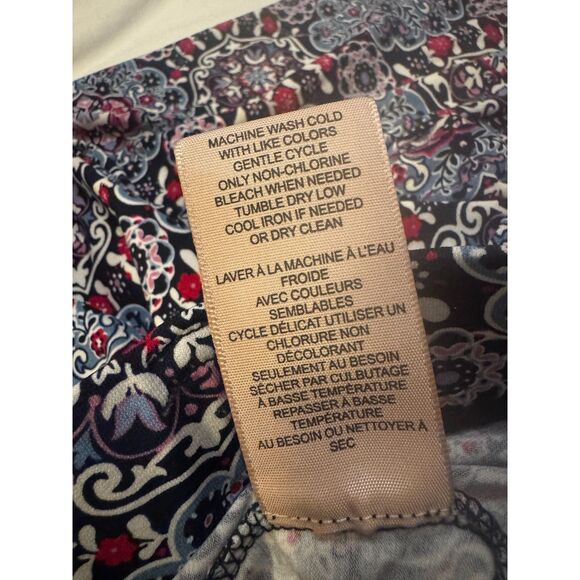 MACHINE WASH COLD
WITH LIKE COLORS
GENTLE CYCLE
ONLY NON-CHLORINE
BLEACH WHEN NEEDED
TUMBLE DRY LOW
COOL IRON IF NEEDED
OR DRY CLEAN
LAVER À LA MACHINE À L'EAU
FROIDE
AVEC COULEURS
SEMBLABLES
CYCLE DÉLICAT UTILISER UN
CHLORURE NON
DÉCOLORANT
SEULEMENT AU BESOIN
SÉCHER PAR CULBUTAGE
À BASSE TEMPÉRATURE
REPASSER À BASSE
TEMPÉRATURE
AU BESOIN OU NETTOYER À
SEC